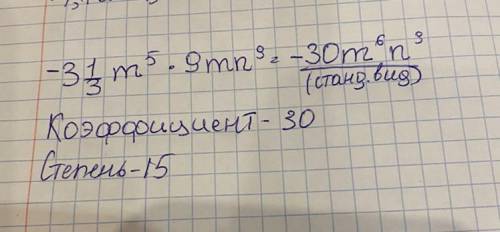 -3 1/3 m⁵ · 9mn⁹ = -30m⁶n⁹
(станд. вид)
Коэффициент - 30
Степень - 15